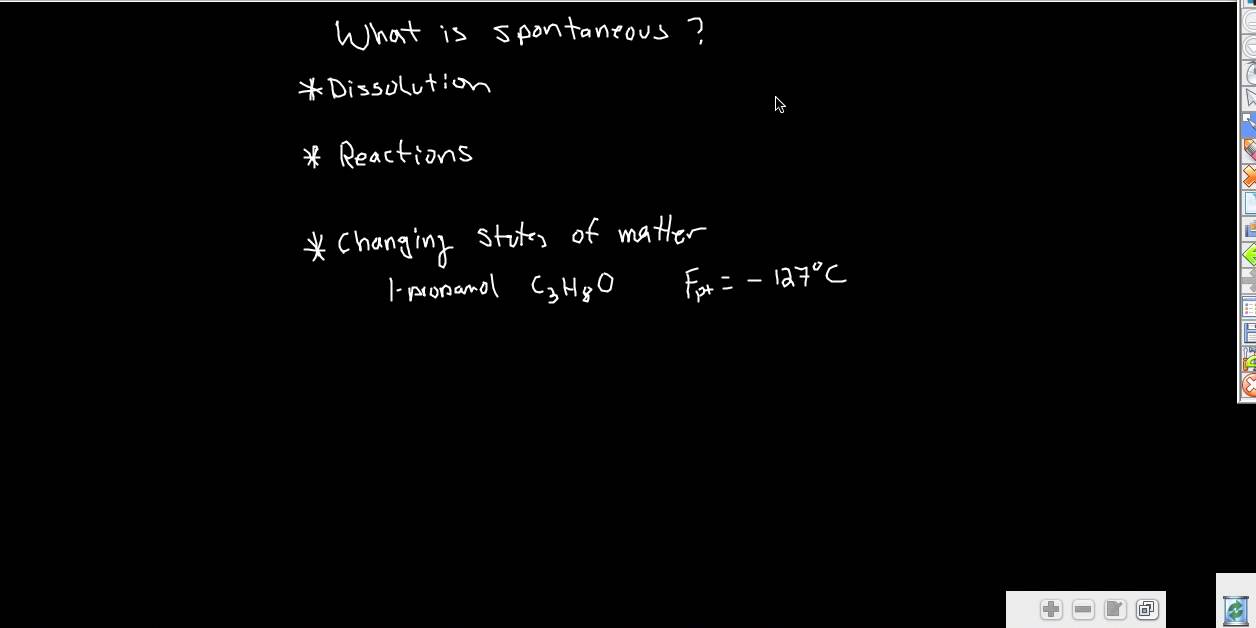 What is spontaneous?
* Dissolution
* Reactions
* Changing states of matter
1-propanol C₃H₈O Fpt = -127°C